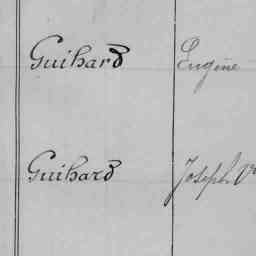 Guihard Eugène
Guihard Joseph